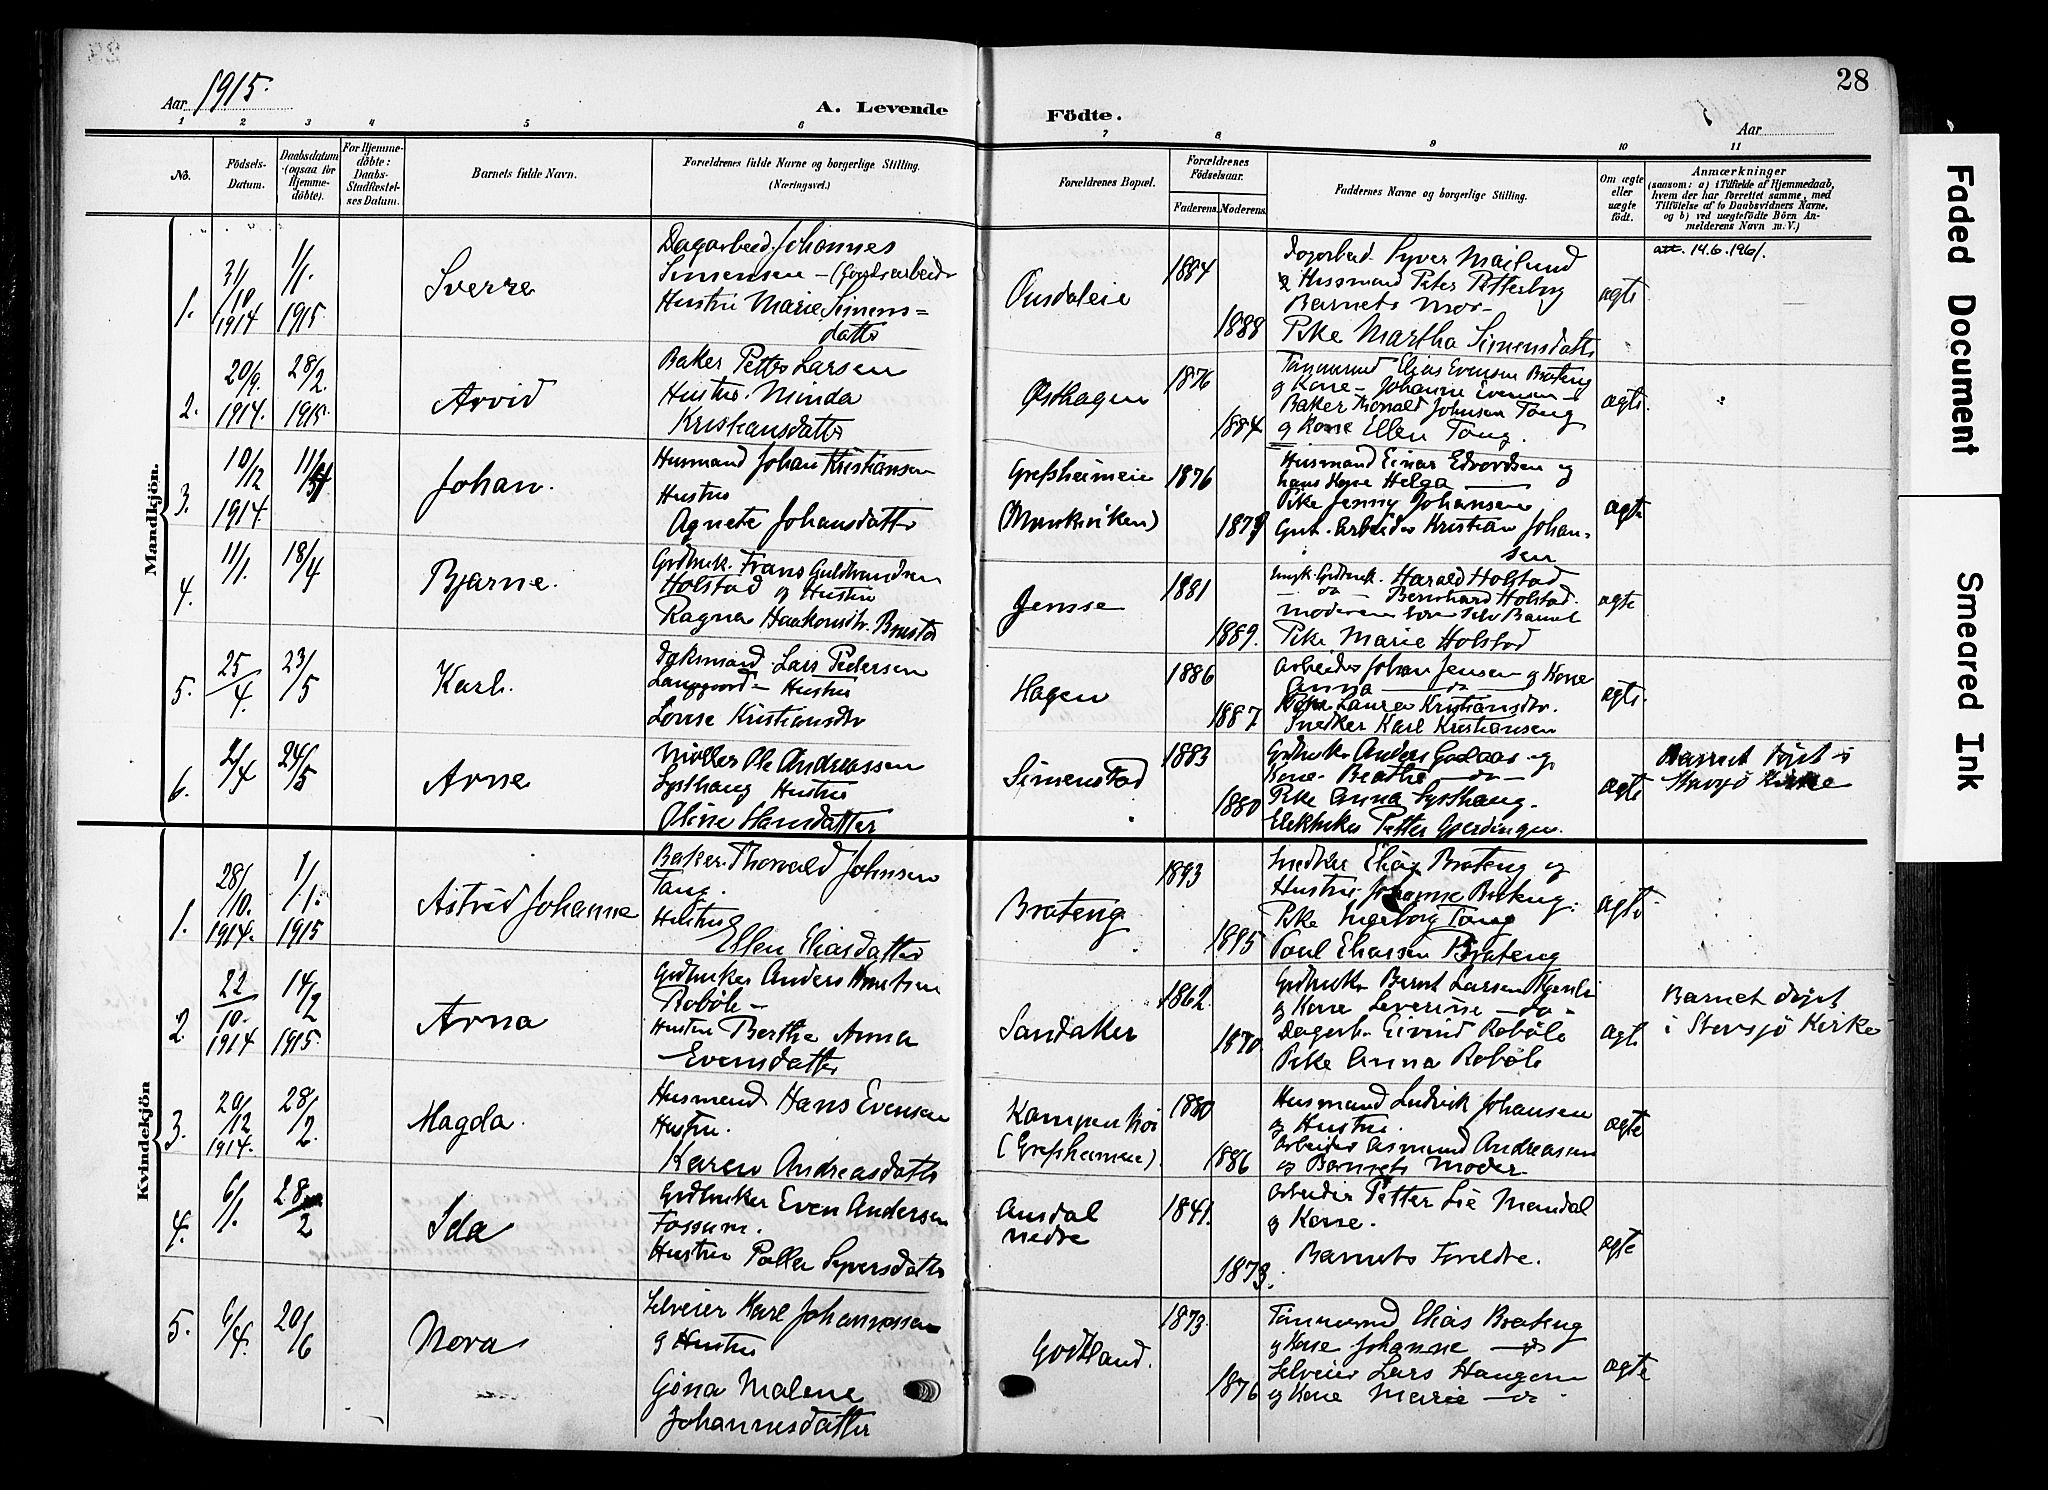 28
Aar 1915.
A. Levende
Födte.
Aar
1 2 3 4 5 6 7 8 9 10 11
No.
Födsels-
Datum.
Daabsdatum
(ogsaa for
Hjemme-
døbte).
For Hjemme-
døbte:
Daabs-
Stadfæstel-
ses Datum.
Barnets fulde Navn.
Forældrenes fulde Navne og borgerlige Stilling.
(Næringsvei.)
Forældrenes Bopæl.
Forældrenes
Födselsaar.
Faderens. Moderens.
Faddernes Navne og borgerlige Stilling.
Om ægte
eller
uægte
født.
Anmærkninger
(saasom: a) i Tilfælde af Hjemmedaab,
hvem der har forrettet samme, med
Tilføielse af to Daabsvidners Navne,
og b) ved uægtefødte Börn An-
melderens Navn m. V.)
Mandkjön.
1.
31/10
1914
1/1
1915
Sverre
Dagarbeid. Johannes
Simensen - (Gaardsarbeider
Hustru Marie Simens-
datter
1884
1888
Dagarbeid Syver Mailund
og Husmand Peter Petterborg
Barnets Mor -
Pike Martha Simensdatter
ægte
att. 14.6.1961.
2.
20/9.
1914.
28/2.
1915.
Arvid
Baker Petter Larsen
Hustru. Minda
Kristiansdatter
Østhagen
1876
1884
Tømmermd Elias Evensen Brateng
og Kone - Johanne Evensen -
Baker Thorvald Johnsen Tang
og Kone Ellen Tang.
ægte.
3.
10/12
1914.
Johan.
Husmand Johan Kristiansen
Hustru
Agnete Johansdatter
Grefsheimeie
(Munkeviken)
1876
Husmand Einar Edvardsen og
hans Kone Helga
Pike Jenny Johansen
Gut. Arbeider Kristian Johan-
sen
ægte
4.
11/1.
18/4
Bjarne.
Grdbruk. Frans Guldbrandsen
Holstad og Hustru
Ragna Haakonsdtr. Brustad
Jensse
1881
1889.
Ungk. Grdbruk. Harald Holstad
do - Bernhard Holstad.
Moderen bar selv Barnet
Pike Marie Holstad
ægte
5.
25/4.
23/5
Karl.
Lars Pedersen
Hustru
Lovise Kristiansdtr
Hagen
1886
1887
Arbeider Johan Jensen og Kone
Anna - do
Pike Laura Kristiansdtr.
Snedker Karl Kristiansen
ægte.
6.
2/4
24/5
Arne
Møller Ole Andreassen
Lysthaug Hustru
Oline Hansdatter
Simenstad
1883
1880
Grdbruker Anders Godaas - og
Kone - Beathe - do -
Pike Anna Lysthaug.
Elektriker Petter Gjerdingen.
ægte
Barnet døpt i
Stavsjø Kirke
Kvindekjön
1.
28/10.
1914.
1/1.
1915
Astrid Johanne
Baker. Thorvald Johnsen
Tang.
Hustru
Ellen Eliasdatter
Brateng
1893
1895
Snedker Elias Brateng og
Hustru Johanne Brateng.
Pike Ingeborg Tang
Paul Eliassen Brateng
ægte
2.
22/10.
1914
14/2
1915.
Arna
Grdbruker Anders Knutsen
Robøle -
Hustru Berthe Anna
Evensdatter
Sandaker
1862.
1870.
Grdbruker Bernt Larsen
og Kone Severine - do -
Dagarb. Eivind Robøle
Pike Anna Robøle
ægte
Barnet døpt
i Stavsjø Kirke
3.
20/12
1914.
28/2.
Magda.
Husmand Hans Evensen
Hustru.
Karen Andreasdatter
(Grefsheimeie).
1880
1886
Husmand Ludvik Johansen
og Hustru.
Arbeider Asmund Andreasen
og Barnets Moder.
ægte
4.
6/1.
28/2
Ida
Grdbruker Even Andersen
Fossum.
Hustru Polla Syversdatter
Ausdal
nedre
1873.
Arbeider Petter Lie Mandal
og Kone.
Barnets Foreldre.
ægte
5.
6/4.
20/6
Nora
Selveier Karl Johannessen
og Hustru
Gina Malene
Johannesdatter
Godtland.
1873.
1876
Tømmermd Elias Brateng
og Kone Johanne - do
Selveier Lars Haugen
og Kone Marie - do
ægte
Faded Document
Smeared Ink